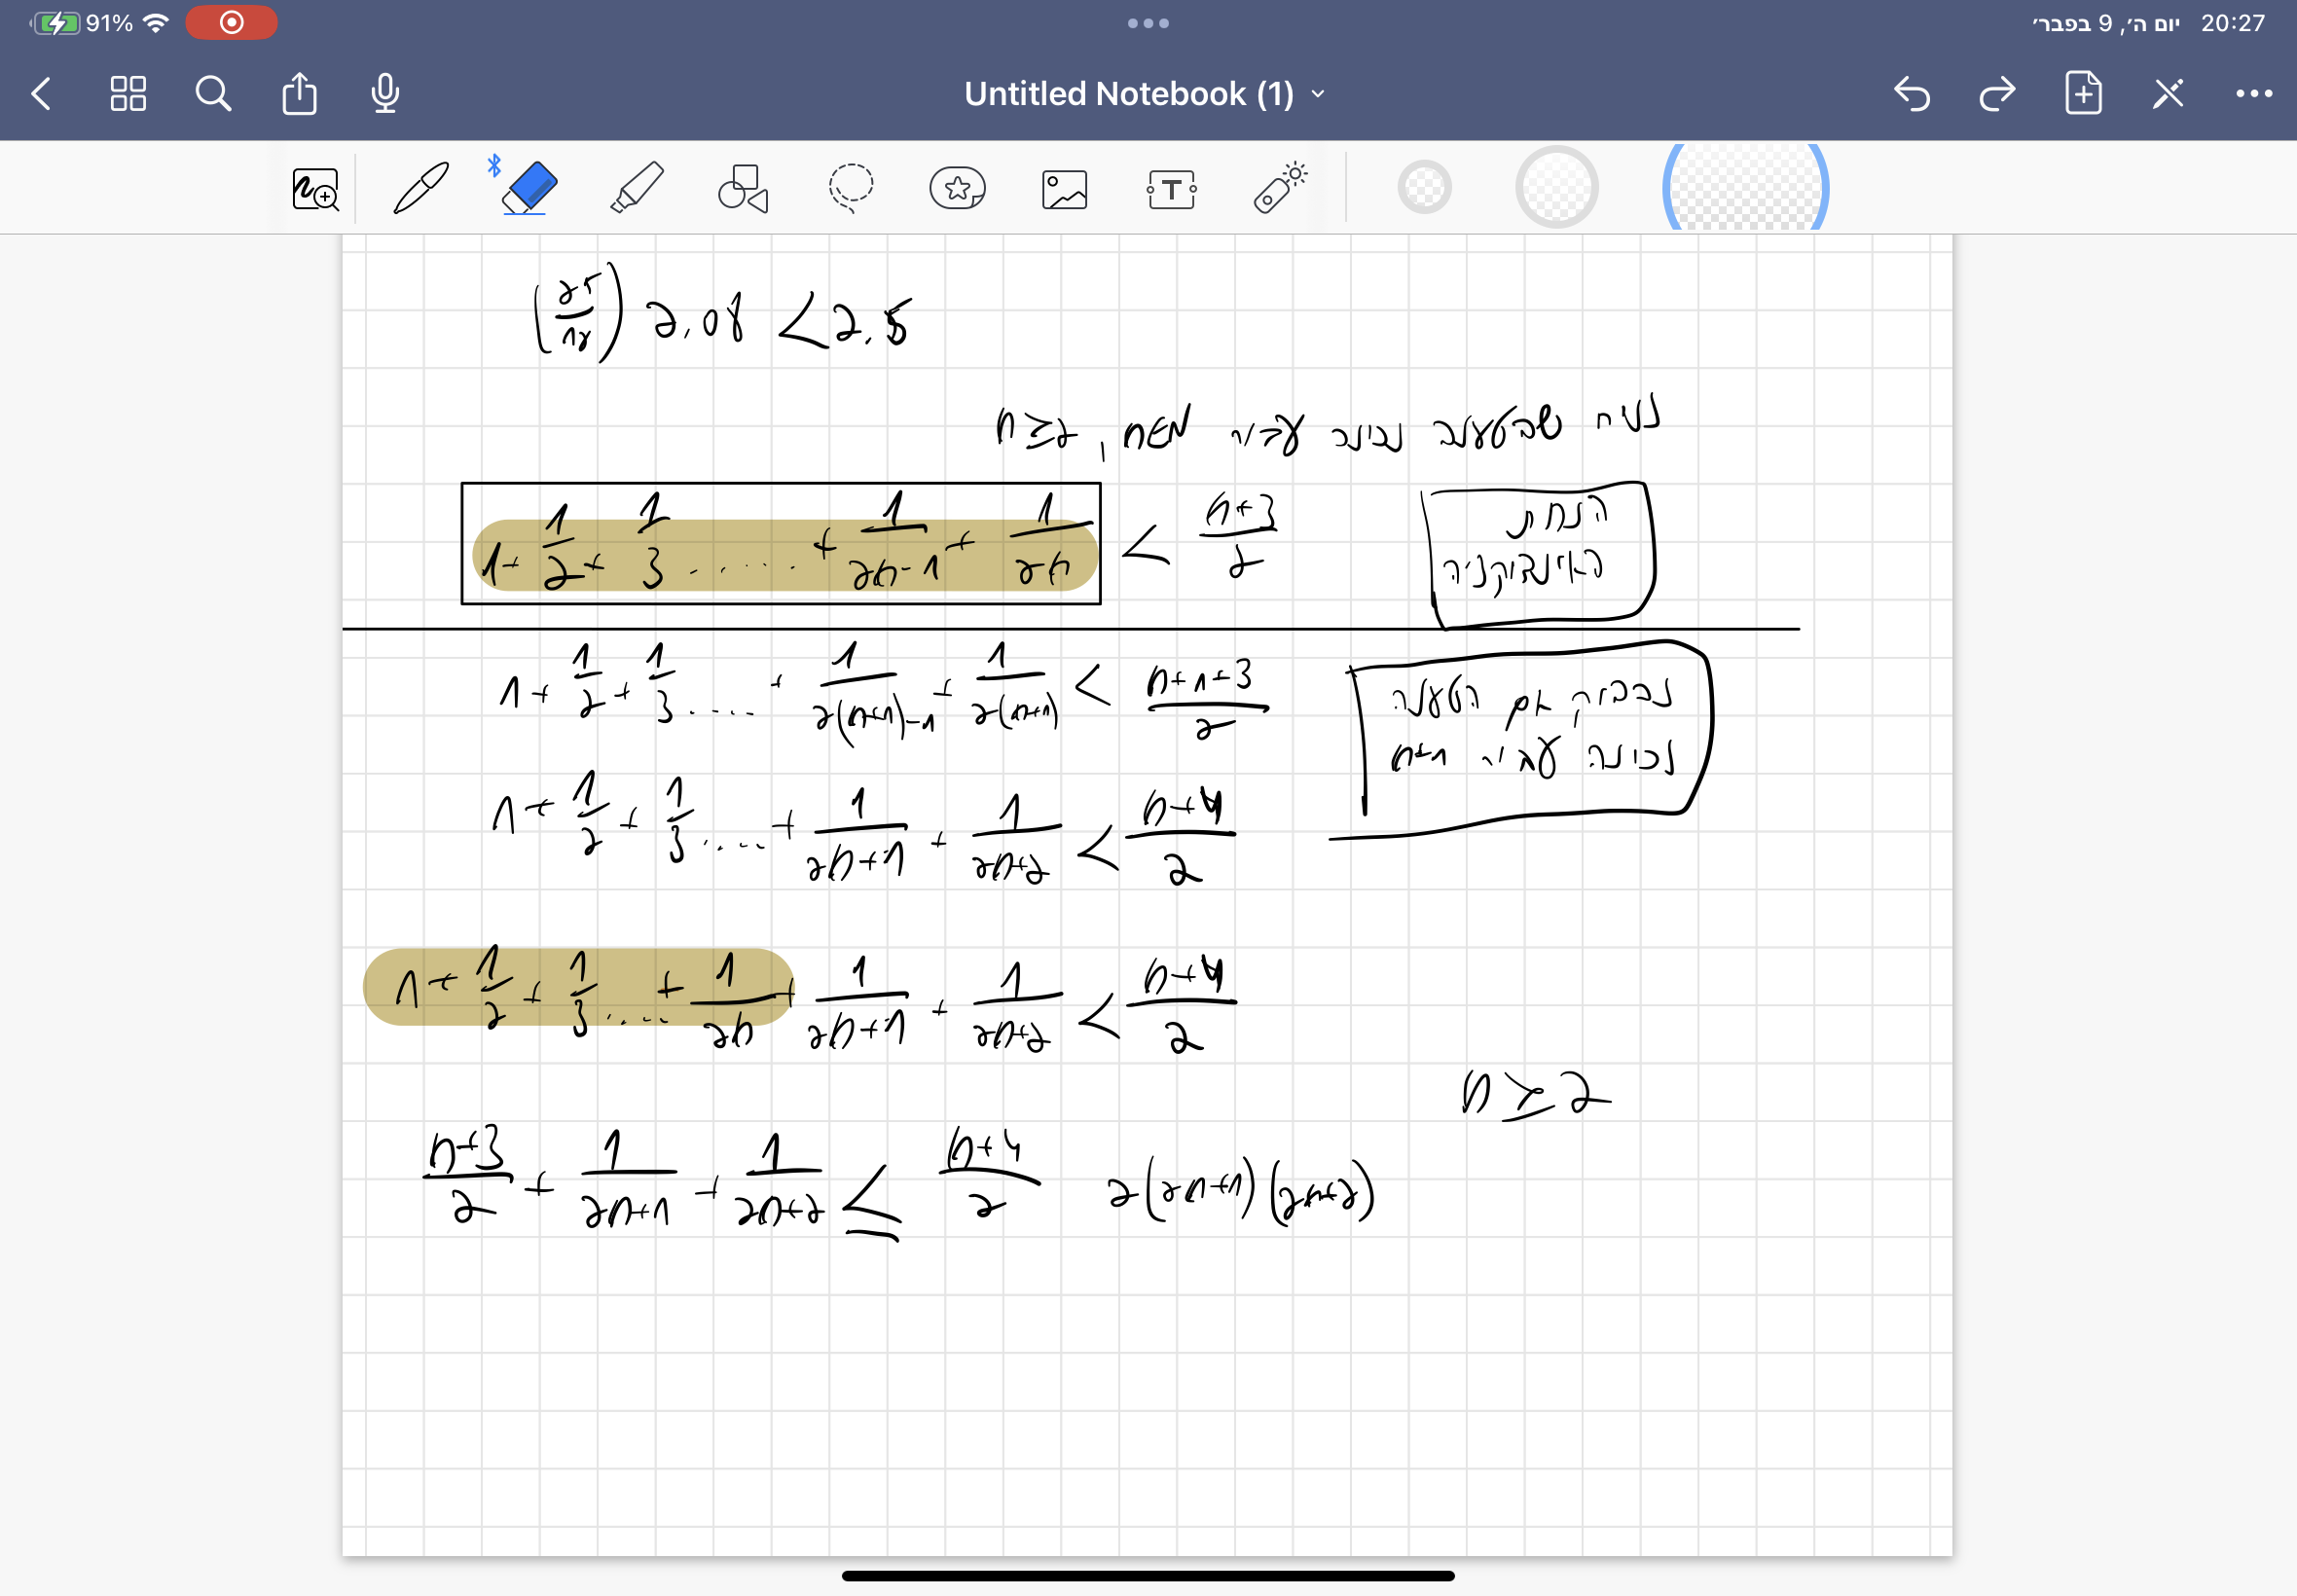 91% יום ה׳, 9 בפבר׳ 20:27
Untitled Notebook (1)
T
(25/12) 2.08 < 2.5
נניח שהטענה נכונה עבור n∈N, n≥2
1 + 1/2 + 1/3 ..... + 1/(2n-1) + 1/(2n) < (n+3)/2
הנחת
האינדוקציה
1 + 1/2 + 1/3 .... + 1/(2(n+1)-1) + 1/(2(n+1)) < (n+1+3)/2
נבדוק אם הטענה
נכונה עבור n+1
1 + 1/2 + 1/3 ..... + 1/(2n+1) + 1/(2n+2) < (n+4)/2
1 + 1/2 + 1/3 ..... + 1/(2n) + 1/(2n+1) + 1/(2n+2) < (n+4)/2
n ≥ 2
(n+3)/2 + 1/(2n+1) + 1/(2n+2) ≤ (n+4)/2 2(2n+1)(2n+2)